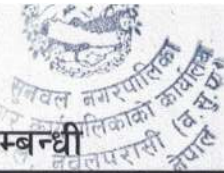 सुनवल नगरपालिका
नगर कार्यपालिकाको कार्यालय
नवलपरासी (ब.सु.प.)
नेपाल
म्बन्धी